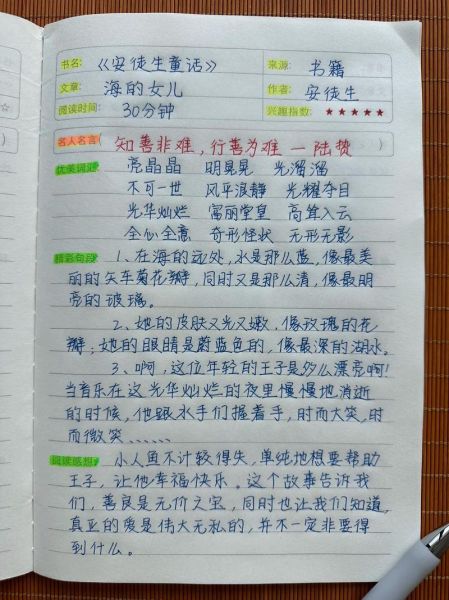 书名: 《安徒生童话》 来源: 书籍
文章: 海的女儿 作者: 安徒生
阅读时间: 30分钟 兴趣指数: ★★★★★
名人名言( 知善非难，行善为难 — 陆贽 )
优美词汇 亮晶晶 明晃晃 光溜溜
不可一世 风平浪静 光耀夺目
光华灿烂 富丽堂皇 高耸入云
全心全意 奇形怪状 无形无影
精彩句段 1、在海的远处，水是那么蓝，像最美
丽的矢车菊花瓣，同时又是那么清，像最明
亮的玻璃。
2、她的皮肤又光又嫩，像玫瑰的花
瓣；她的眼睛是蔚蓝色的，像最深的湖水。
3、啊，这位年轻的王子是多么漂亮啊！
当音乐在这光华灿烂的夜里慢慢地消逝
的时候，他跟水手们握着手，时而大笑，时
而微笑……
阅读感想 小人鱼不计较得失，单纯地想要帮助
王子，让他幸福快乐。这个故事告诉我
们，善良是无价之宝，同时也让我们知道，
真正的爱是伟大无私的，并不一定非要得
到什么。